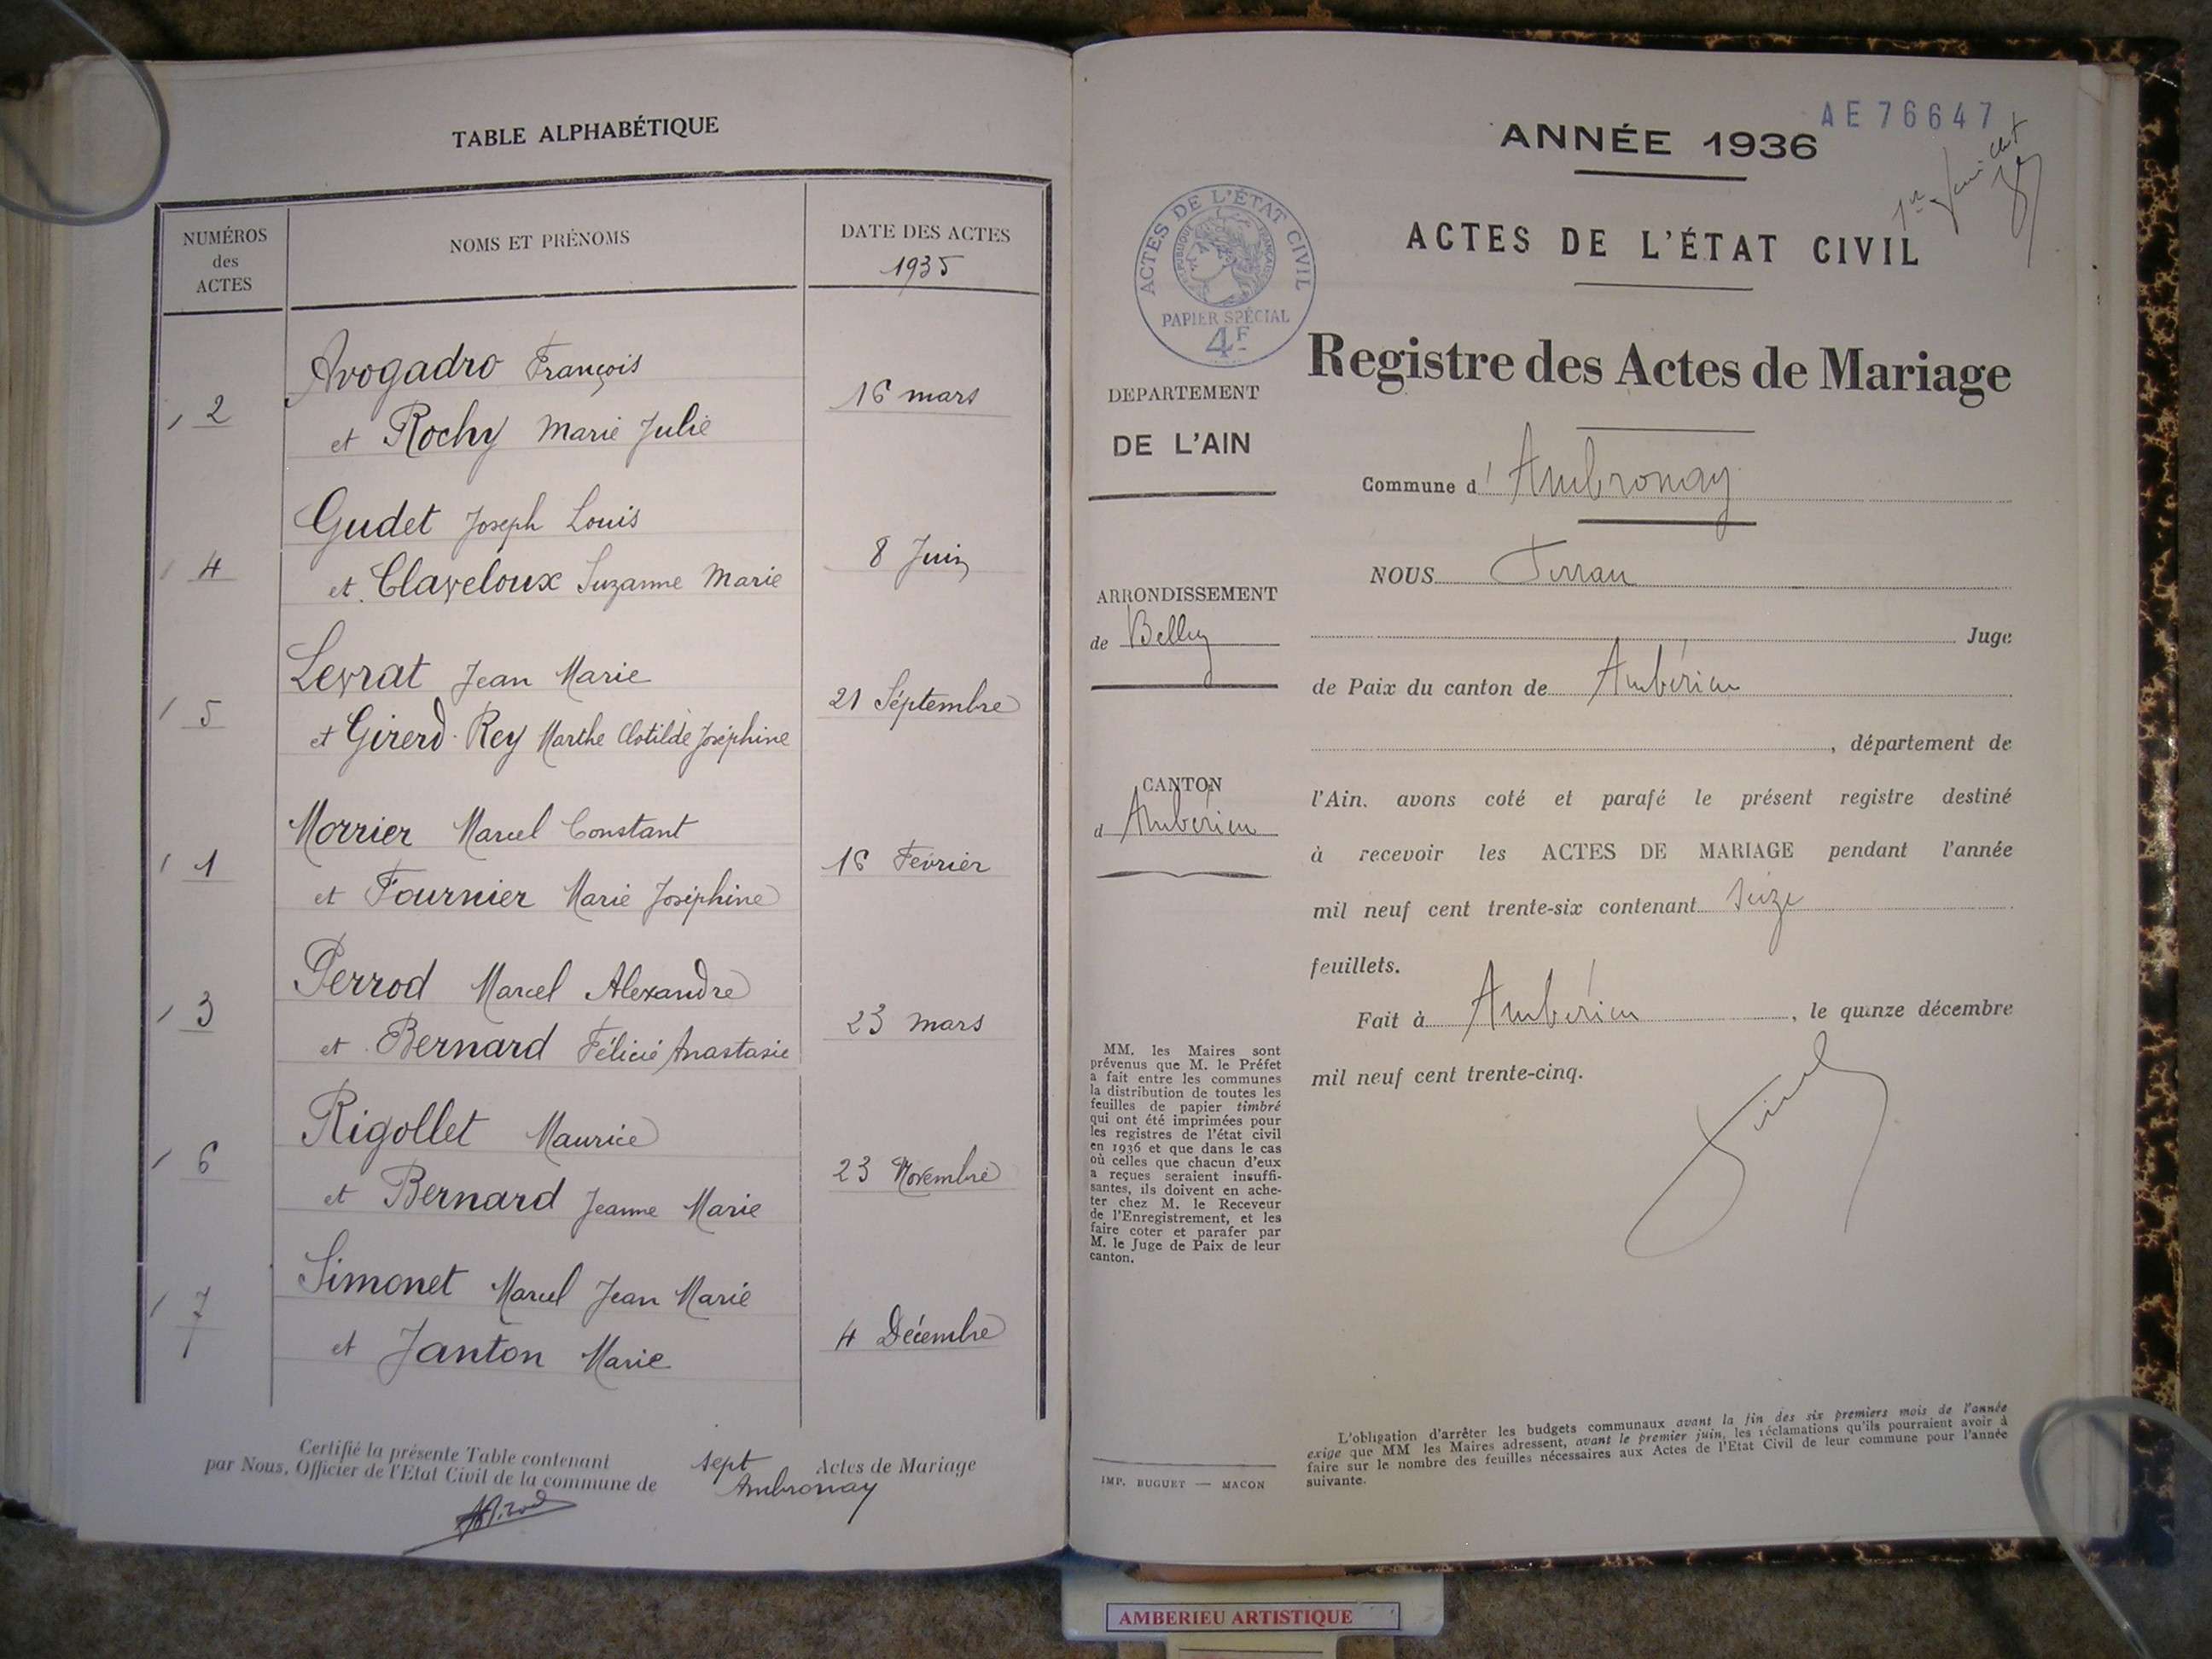 TABLE ALPHABÉTIQUE
NUMÉROS
des
ACTES
NOMS ET PRÉNOMS
DATE DES ACTES
1935
2
Avogadro François
et Rochy Marie Julie
16 mars
4
Gudet Joseph Louis
et Claveloux Suzanne Marie
8 Juin
5
Levrat Jean Marie
et Girerd-Rey Marthe Clotilde Joséphine
21 Séptembre
1
Morrier Marcel Constant
et Fournier Marie Joséphine
16 Février
3
Perrod Marcel Alexandre
et Bernard Félicié Anastasie
23 mars
6
Rigollet Maurice
et Bernard Jeanne Marie
23 Novembre
7
Simonet Marcel Jean Marie
et Janton Marie
4 Décembre
Certifié la présente Table contenant sept Actes de Mariage
par Nous, Officier de l'Etat Civil de la commune de Ambronay
AE 76647
ANNÉE 1936
ACTES DE L'ÉTAT CIVIL
ACTES DE L'ÉTAT CIVIL
RÉPUBLIQUE FRANÇAISE
PAPIER SPÉCIAL
4F
Registre des Actes de Mariage
DEPARTEMENT
DE L'AIN
Commune d'Ambronay
NOUS
ARRONDISSEMENT
de Belley
Juge
de Paix du canton de Ambérieu
, département de
CANTON
d Ambérieu
l'Ain, avons coté et parafé le présent registre destiné
à recevoir les ACTES DE MARIAGE pendant l'année
mil neuf cent trente-six contenant seize
feuillets.
Fait à Ambérieu, le quinze décembre
mil neuf cent trente-cinq.
MM. les Maires sont
prévenus que M. le Préfet
a fait entre les communes
la distribution de toutes les
feuilles de papier timbré
qui ont été imprimées pour
les registres de l'état civil
en 1936 et que dans le cas
où celles que chacun d'eux
a reçues seraient insuffi-
santes, ils doivent en ache-
ter chez M. le Receveur
de l'Enregistrement, et les
faire coter et parafer par
M. le Juge de Paix de leur
canton.
IMP. BUGUET — MACON
L'obligation d'arrêter les budgets communaux avant la fin des six premiers mois de l'année
exige que MM les Maires adressent, avant le premier juin, les réclamations qu'ils pourraient avoir à
faire sur le nombre des feuilles nécessaires aux Actes de l'Etat Civil de leur commune pour l'année
suivante.
AMBERIEU ARTISTIQUE